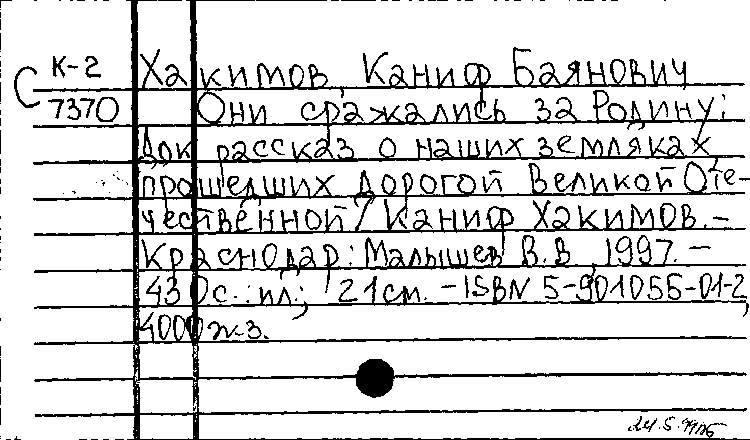 К-2 Хакимов, Каниф Баянович
С 7370 Они сражались за Родину:
Док. рассказ о наших земляках
прошедших дорогой Великой Оте-
чественной / Каниф Хакимов. –
Краснодар: Малышев В.В, 1997. –
430с.: ил.; 21см. – ISBN 5-901055-01-2,
4000 экз.
24.5.99